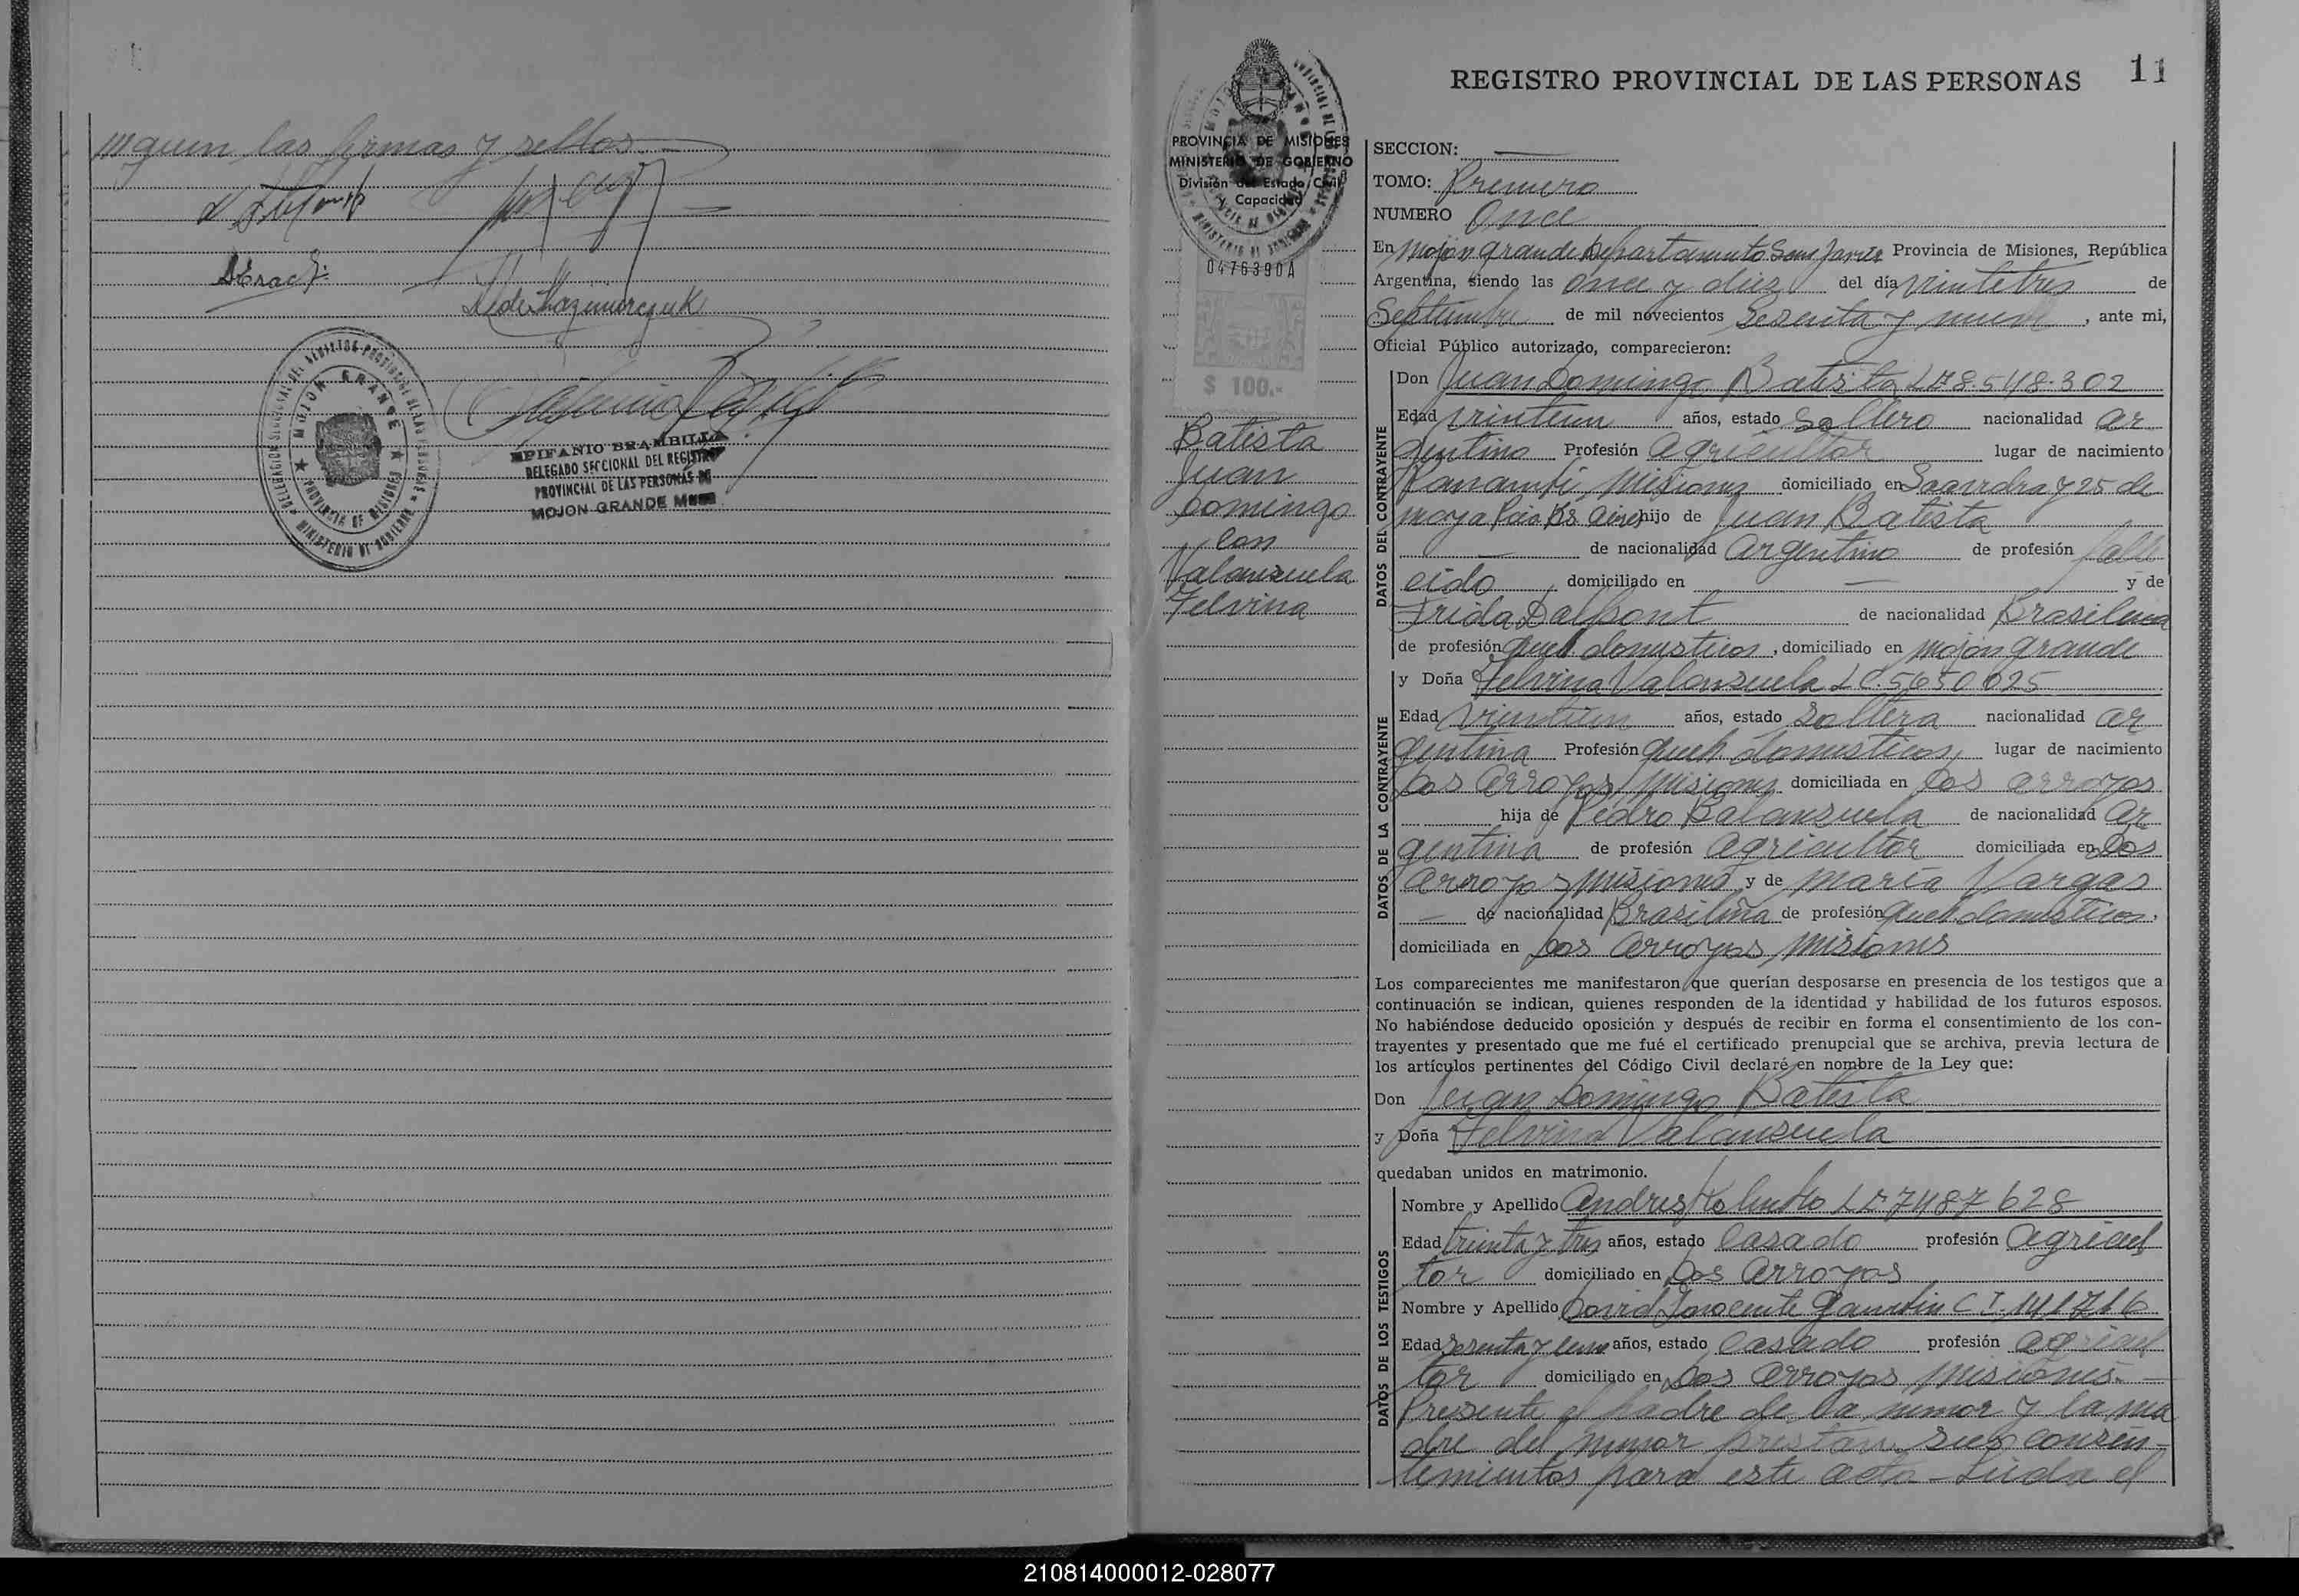 siguen las firmas y sellos
EPIFANIO BRAMBILLA
DELEGADO SECCIONAL DEL REGISTRO
PROVINCIAL DE LAS PERSONAS DE
MOJON GRANDE
MOJON GRANDE
PROVINCIA DE MISIONES
11
REGISTRO PROVINCIAL DE LAS PERSONAS
PROVINCIA DE MISIONES
MINISTERIO DE GOBIERNO
División del Estado Civil
y Capacidad
0476390A
$ 100.-
Batista
Juan
Domingo
con
Valanzuela
Felvina
SECCION:
TOMO: Primero
NUMERO Once
En Mojón Grande Departamento San Javier Provincia de Misiones, República
Argentina, siendo las once y diez del día vintitres de
Septiembre de mil novecientos sesenta y nueve, ante mi,
Oficial Público autorizado, comparecieron:
DATOS DEL CONTRAYENTE
Don Juan Domingo Batista LE 8.548.302
Edad vintiun años, estado soltero nacionalidad ar
gentino Profesión agricultor lugar de nacimiento
Panambi Misiones domiciliado en Saavedra y 25 de
mayo hijo de Juan Batista
de nacionalidad Argentino de profesión falle
cido domiciliado en y de
Frida Dalpont de nacionalidad Brasilera
de profesión queh domesticos, domiciliado en mojón grande
DATOS DE LA CONTRAYENTE
y Doña Felvina Valanzuela LC. 5650625
Edad años, estado soltera nacionalidad ar
gentina Profesión queh domesticos, lugar de nacimiento
Dos Arroyos, Misiones domiciliada en Dos Arroyos
hija de Pedro Balanzuela de nacionalidad Ar
gentina de profesión Agricultor domiciliada en Dos
Arroyos Misiones y de María Vargas
de nacionalidad Brasileña de profesión queh domesticos,
domiciliada en Dos Arroyos, Misiones
Los comparecientes me manifestaron que querían desposarse en presencia de los testigos que a
continuación se indican, quienes responden de la identidad y habilidad de los futuros esposos.
No habiéndose deducido oposición y después de recibir en forma el consentimiento de los con-
trayentes y presentado que me fué el certificado prenupcial que se archiva, previa lectura de
los artículos pertinentes del Código Civil declaré en nombre de la Ley que:
Don Juan Domingo Batista
y Doña Felvina Valanzuela
quedaban unidos en matrimonio.
DATOS DE LOS TESTIGOS
Nombre y Apellido Andres LE 7487628
Edad treinta y tres años, estado Casado profesión Agricul
tor domiciliado en Dos Arroyos
Nombre y Apellido David Inocente C I.
Edad sesenta y años, estado Casado profesión agricul
tor domiciliado en Dos Arroyos Misiones.
Presente el padre de la menor y la ma
dre del menor prestan sus consen-
timientos para este acto - Leida el
210814000012-028077